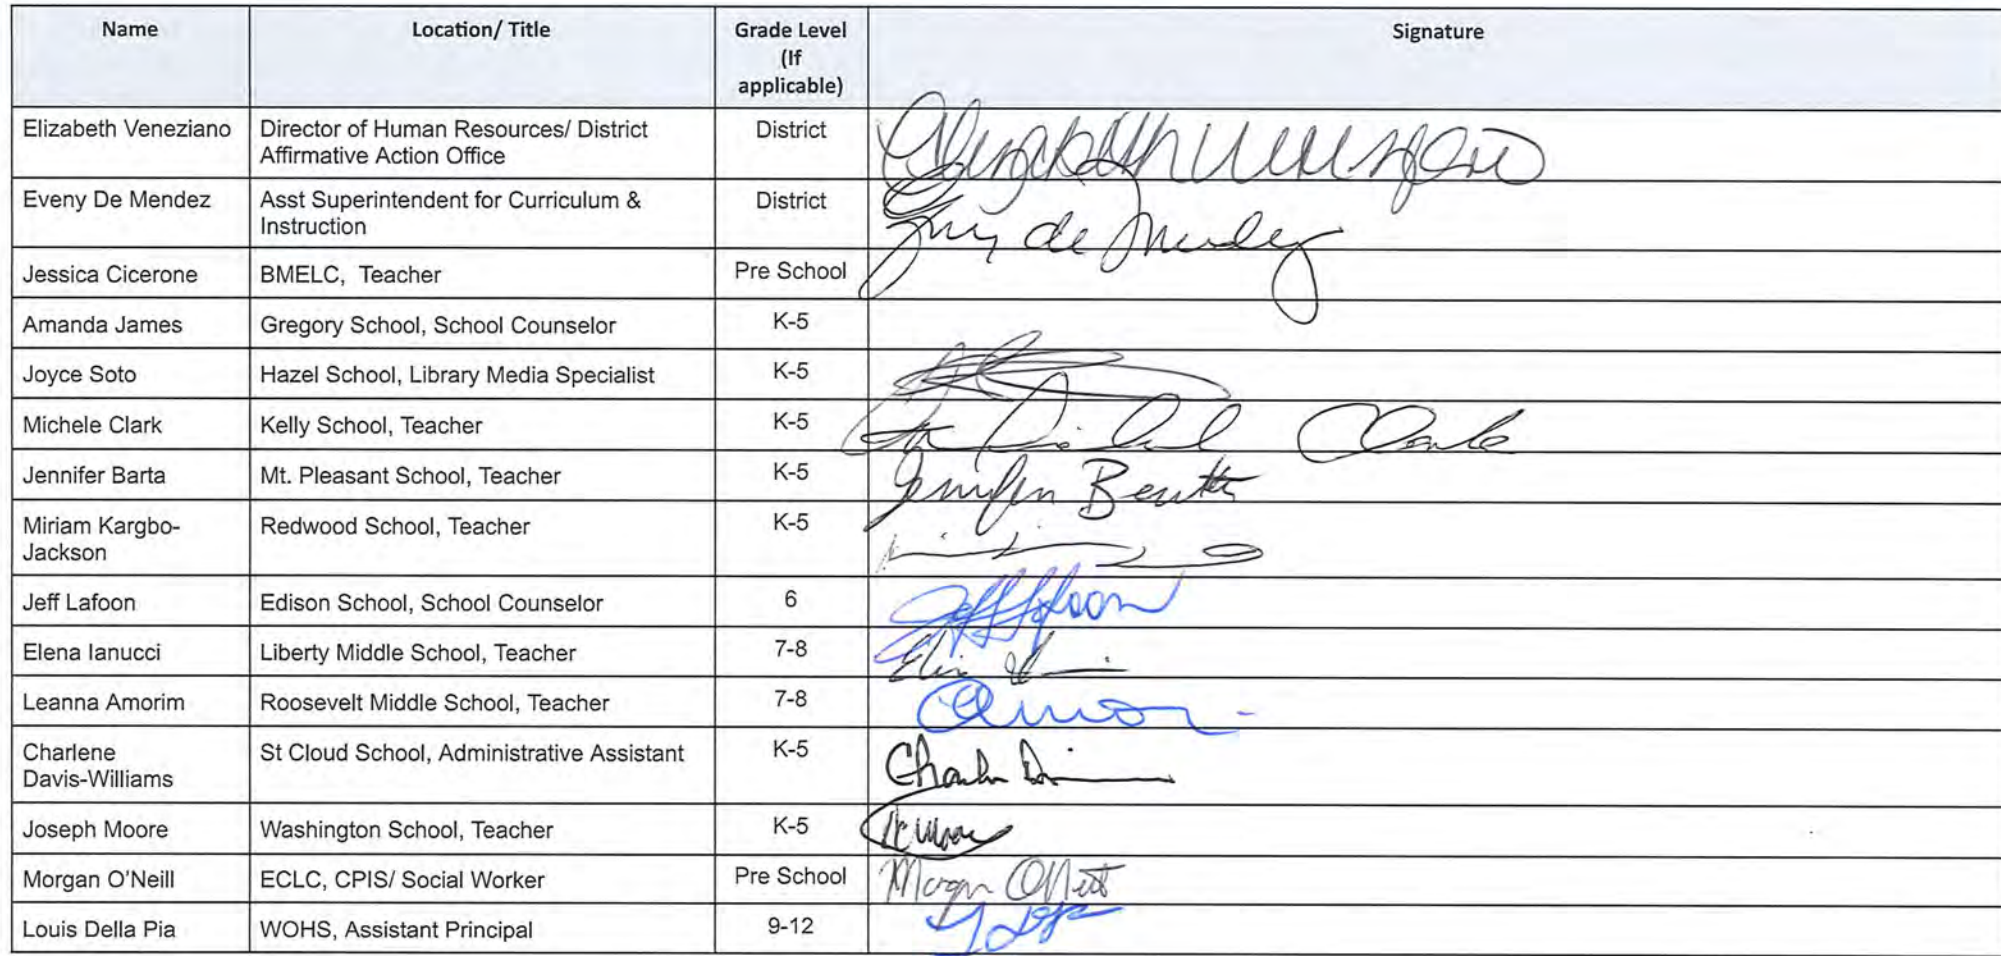 Name Location/ Title Grade Level Signature
(If
applicable)
Elizabeth Veneziano Director of Human Resources/ District District
Affirmative Action Office
Eveny De Mendez Asst Superintendent for Curriculum & District
Instruction
de
Jessica Cicerone BMELC, Teacher Pre School
Amanda James Gregory School, School Counselor K-5
Joyce Soto Hazel School, Library Media Specialist K-5
Michele Clark Kelly School, Teacher K-5
Jennifer Barta Mt. Pleasant School, Teacher K-5 Jennifer
Miriam Kargbo- Redwood School, Teacher K-5
Jackson
Jeff Lafoon Edison School, School Counselor 6 Jeff Lafoon
Elena Ianucci Liberty Middle School, Teacher 7-8
Leanna Amorim Roosevelt Middle School, Teacher 7-8
Charlene St Cloud School, Administrative Assistant K-5
Davis-Williams
Joseph Moore Washington School, Teacher K-5
Morgan O'Neill ECLC, CPIS/ Social Worker Pre School Morgan
Louis Della Pia WOHS, Assistant Principal 9-12